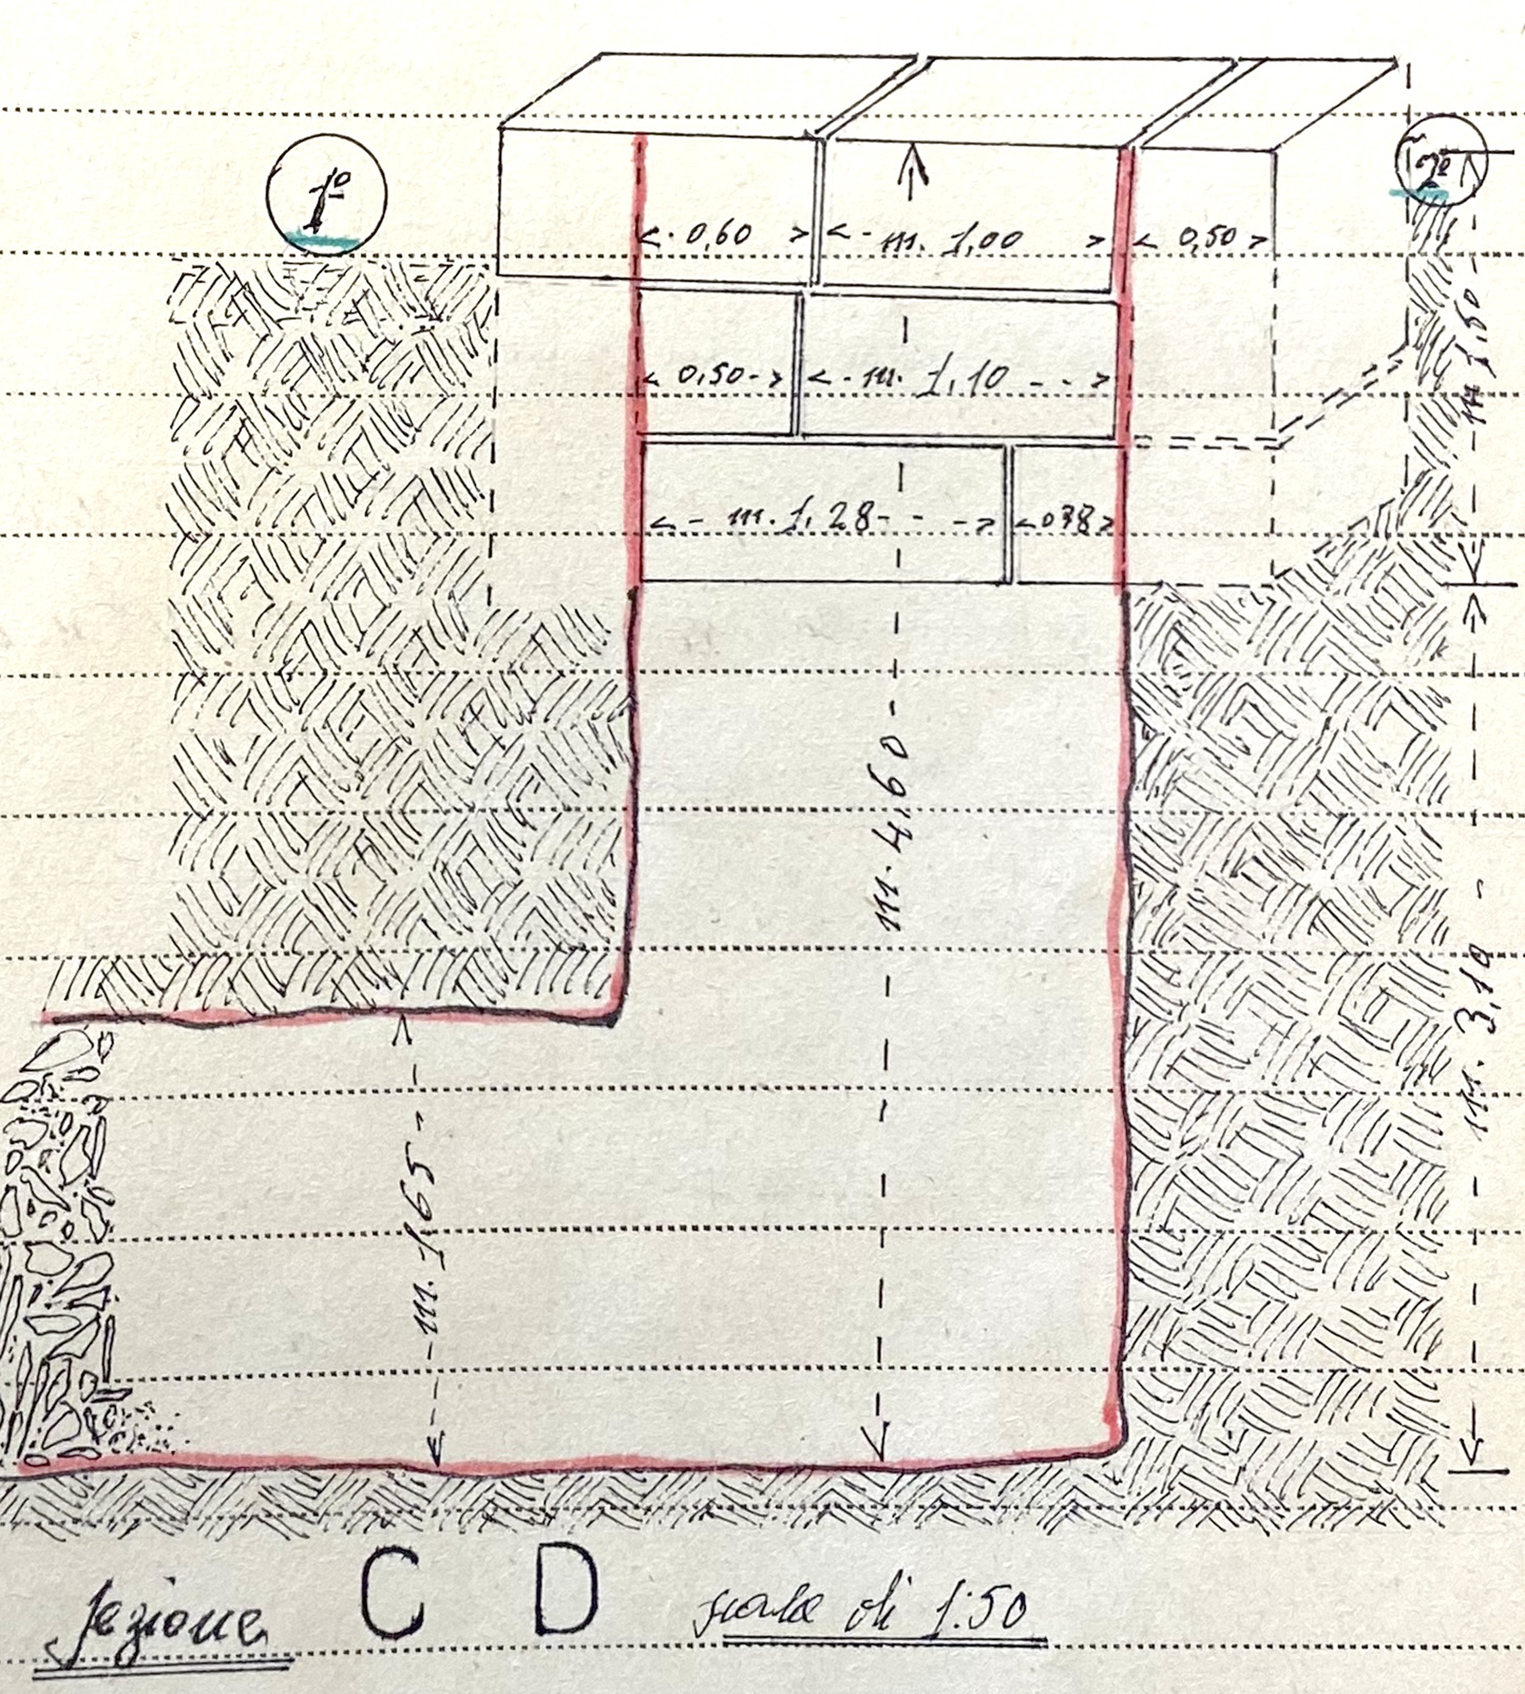 1º
2º
0,60
m. 1,00
0,50
m 1,50
0,50
m. 1,10
m. 1,28
0,38
m. 4,60
m. 3,10
m. 1,65
sezione C D scala di 1:50